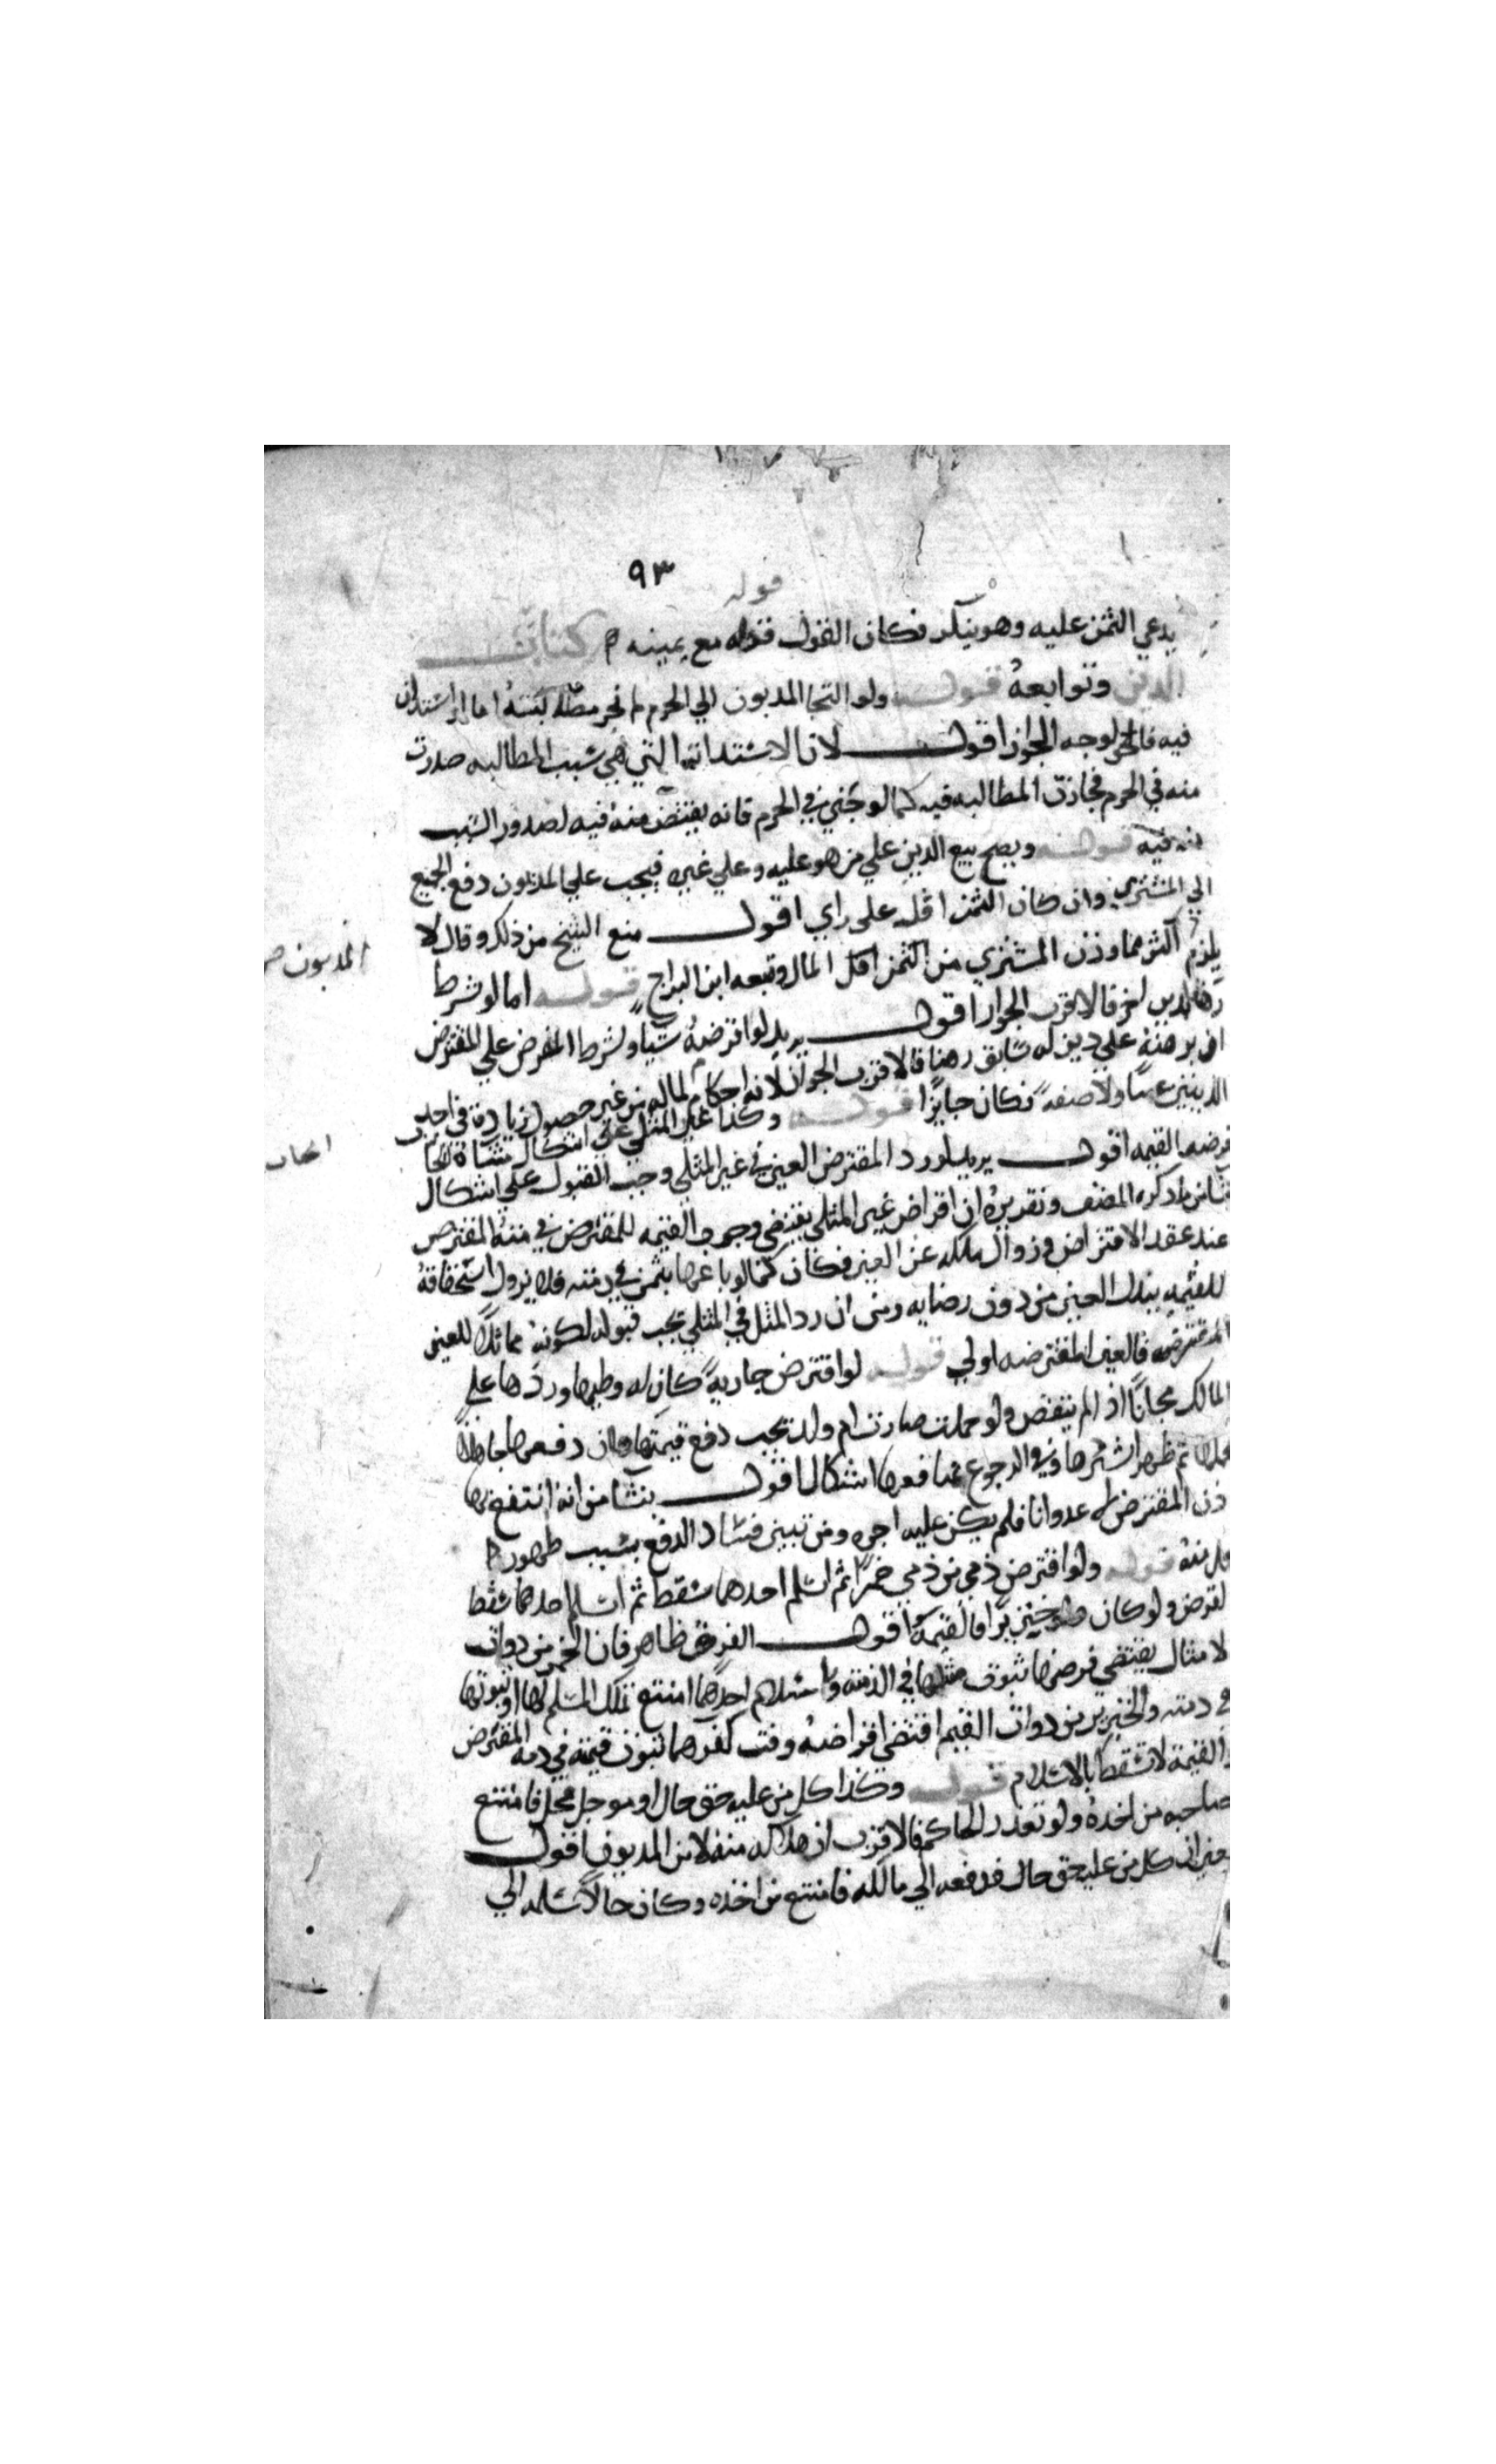 ٩٣
قوله
يدعي الثمن عليه وهو ينكر فكان القول قوله مع يمينه كتاب
الدين وتوابعه قوله ولو التجا المديون الي الحرم لم تجز مطالبته اما لو استدان
فيه فالحق لوجه الجواز اقول لان الاستدانة التي هي سبب المطالبه صدرت
منه في الحرم فجازت المطالبه فيه كما لو جني في الحرم فانه يقتض منه فيه لصدور السبب
منه فيه قوله ويصح بيع الدين علي من هو عليه وعلي غيره فيجب علي المديون دفع الجميع
الي المشتري وان كان الثمن اقل علي راي اقول منع الشيخ من ذلك وقال لا
يلزم اكثر مما وزن المشتري من الثمن اقل المال وتبعه ابن البراج قوله اما لو شرط
رهنا لدين اخر فالاقرب الجواز اقول يريد لو اقرضه شيا وشرط المقرض علي المقترض
ان يرهنه علي دين له سابق رهنا فالاقرب الجواز لانه احكام لماله من غير حصول زيادة في احد
الدينين عينا ولا صفة فكان جايزا قوله وكذا غير المثلي علي اشكال منشاه ايجاب
قرضه القيمه اقول يريد لو رد المقترض العين في غير المثلي وجب القبول علي اشكال
ينشا من ما ذكره المصنف وتقديره ان اقراض غير المثلي يقتضي وجوب القيمه للمقرض في ذمة المقترض
عند عقد الاقتراض وزوال ملكه عن العين فكان كما لو باعها بثمن في ذمته فلا يزول استحقاقه
للقيمه ببذل العين من دون رضايه ومن ان رد المثل في المثلي يجب قبوله لكونه مماثلا للعين
المقترضه فالعين المقترضه اولي قوله لو اقترض جارية كان له وطيها وردها علي
المالك مجانا اذا لم ينقص ولو حملت صارت ام ولد يجب دفع قيمتها فان دفعها جاهلا
بحملها ثم ظهر استردها وفي الرجوع بمنافعها اشكال اقول ينشا من انه انتفع بها
دون المقترض له عدوانا فلم يكن عليه اجره ومن تبين فساد الدفع بسبب ظهور
حمل منه قوله ولو اقترض ذمي من ذمي خمرا ثم اسلم احدهما سقط ثم اسلم احدهما سقط
القرض ولو كان خنزيرا فالقيمة اقول الفرق ظاهر فان الخمر من ذوات
الامثال يقتضي قرضها ثبوت مثلها في الذمه واسلام احدهما امتنع تملك المسلم لها او ثبوتها
في ذمته والخنزير من ذوات القيم اقتضي اقراضه وقت كفرهما ثبوت قيمته في ذمة المقترض
والقيمة لا تسقط بالاسلام قوله وكذا كل من عليه حق حال او موجل فحل فامتنع
صاحبه من اخذه ولو تعذر الحاكم فالاقرب ان هلاكه منه لا من المديون اقول
يعني ان كل من عليه حق حال فدفعه الي مالكه فامتنع من اخذه وكان حالا سلمه الي
المديون صح
ايجاب